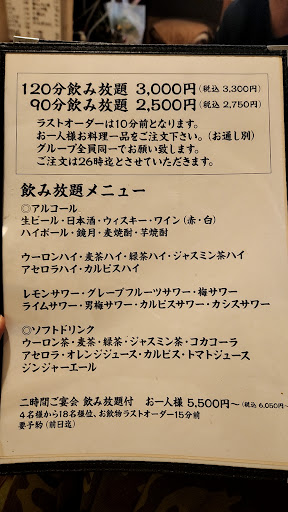 120分飲み放題 3,000円(税込 3,300円)
90分飲み放題 2,500円(税込 2,750円)
ラストオーダーは10分前となります。
お一人様お料理一品をご注文下さい。(お通し別)
グループ全員同一でお願い致します。
ご注文は26時迄とさせていただきます。
飲み放題メニュー
◎アルコール
生ビール・日本酒・ウィスキー・ワイン(赤・白)
ハイボール・鏡月・麦焼酎・芋焼酎
ウーロンハイ・麦茶ハイ・緑茶ハイ・ジャスミン茶ハイ
アセロラハイ・カルピスハイ
レモンサワー・グレープフルーツサワー・梅サワー
ライムサワー・男梅サワー・カルピスサワー・カシスサワー
◎ソフトドリンク
ウーロン茶・麦茶・緑茶・ジャスミン茶・コカコーラ
アセロラ・オレンジジュース・カルピス・トマトジュース
ジンジャーエール
二時間ご宴会 飲み放題付 お一人様 5,500円~(税込 6,050円~)
4名様から18名様位、お飲物ラストオーダー15分前
要予約(前日迄)